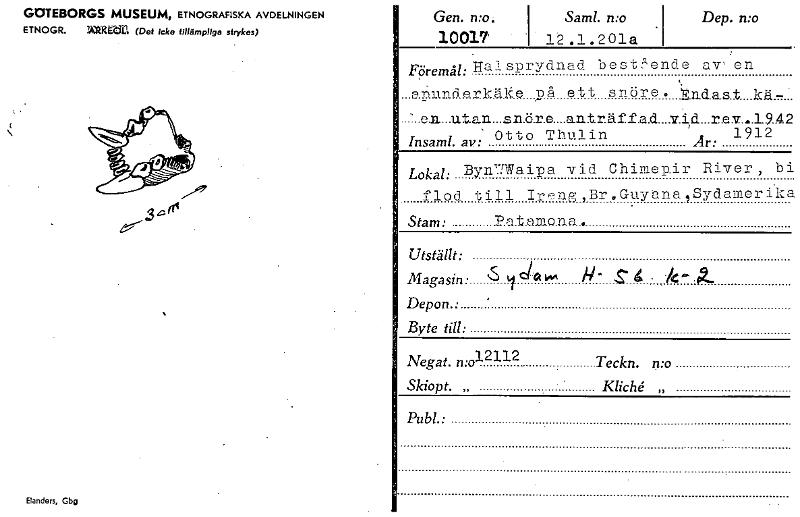 GÖTEBORGS MUSEUM, ETNOGRAFISKA AVDELNINGEN
ETNOGR. ARKEOL. (Det icke tillämpliga strykes)
3 cm
Elanders, Gbg
Gen. n:o. Saml. n:o Dep. n:o
10017 12.1.201a
Föremål: Halsprydnad bestående av en
apunderkäke på ett snöre. Endast kä-
en utan snöre anträffad vid rev.1942
Insaml. av: Otto Thulin År: 1912
Lokal: Byn Waipa vid Chimepir River, bi
flod till Ireng, Br.Guyana, Sydamerika
Stam: Patamona.
Utställt:
Magasin: Sydam H- 56 k-2
Depon.:
Byte till:
Negat. n:o 12112 Teckn. n:o
Skiopt. „ Kliché „
Publ.: